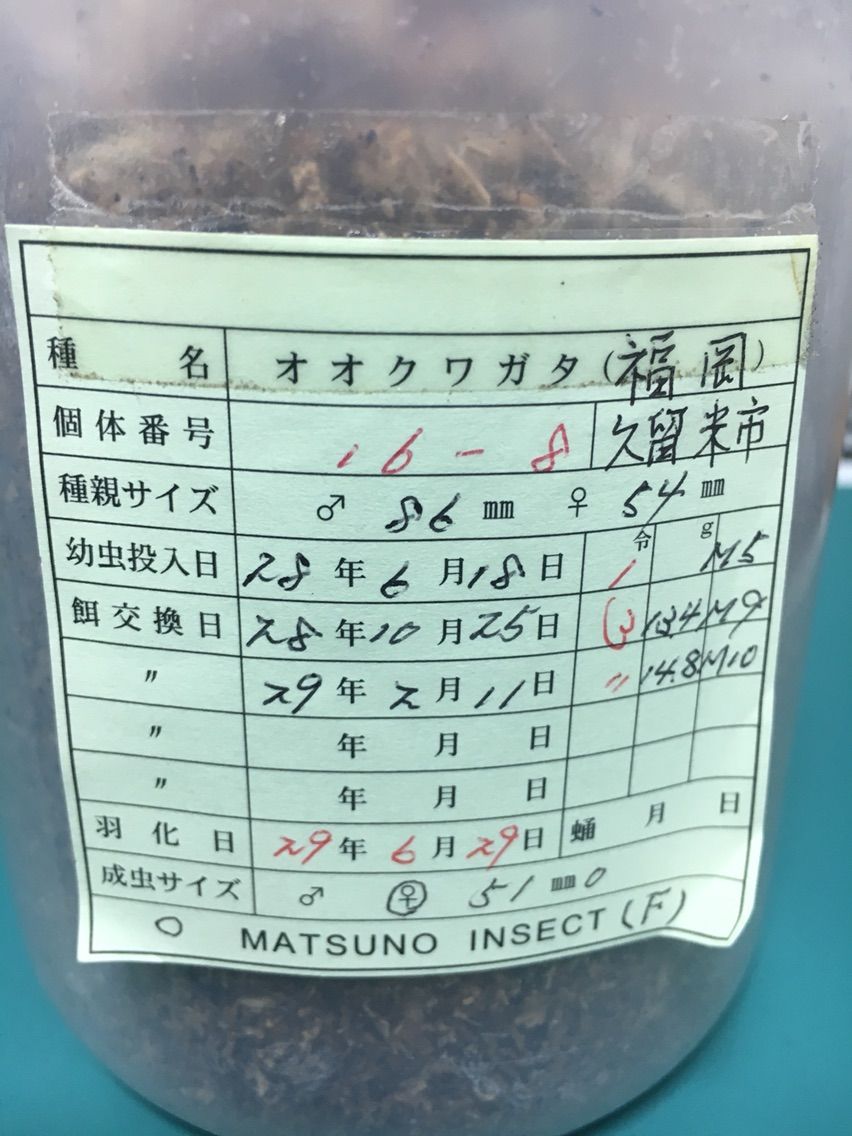 種名 オオクワガタ (福岡)
個体番号 16-8 久留米市
種親サイズ ♂ 86 mm ♀ 54 mm
令 g
幼虫投入日 28年6月18日 1 M5
餌交換日 28年10月25日 3 13.4 M9
〃 29年2月11日 〃 14.8 M10
〃 年 月 日
〃 年 月 日
羽化日 29年6月29日 蛹 月 日
成虫サイズ ♂ ♀ 51 mm 0
○ MATSUNO INSECT (F)